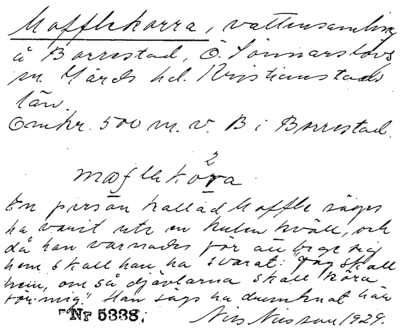 Mafflekarra, vattensamling
å Borrestad, Ö. Sönnarslövs
sn. Gärds hd. Kristianstads
län.
Omkr. 500 m. v. B i Borrestad.
2
En person kallad Maffle säges
ha varit ute en kulen kväll, och
då han varnades för att bege sig
hem skall han ha svarat: "Jag skall
hem, om så djävlarna skall köra
för mig." Han sägs ha drunknat här
Nils Nilsson 1929.
Nr 5338.